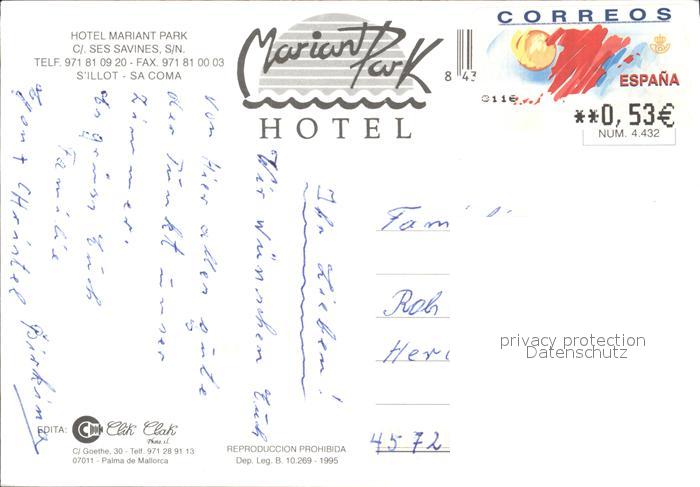 HOTEL MARIANT PARK
C/. SES SAVINES, S/N.
TELF. 971 81 09 20 - FAX. 971 81 00 03
S'ILLOT - SA COMA
Mariant Park
HOTEL
8 43
CORREOS
ESPAÑA
**0,53€
NUM. 4.432
Ihr Lieben!
Wir wünschen Euch
Von Hier alles gute
der Punkt unser
Zimmer.
Es grüsst Euch
Familie
Christel
Fam
Rob
Her
4572
privacy protection
Datenschutz
EDITA:
Clik Clak
Photo, s.l.
C/ Goethe, 30 - Telf. 971 28 91 13
07011 - Palma de Mallorca
REPRODUCCION PROHIBIDA
Dep. Leg. B. 10.269 - 1995